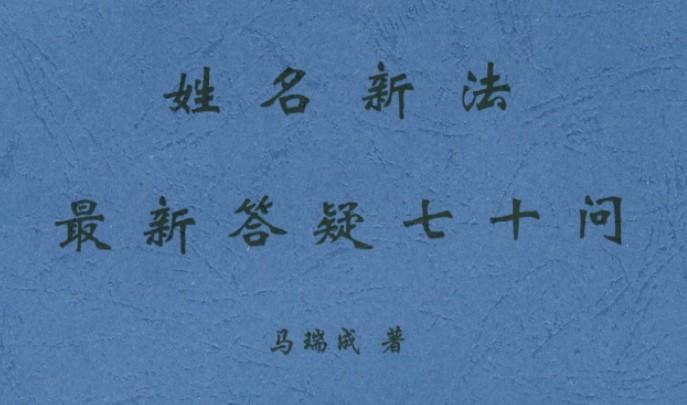 姓名新法
最新答疑七十问
马瑞成 著